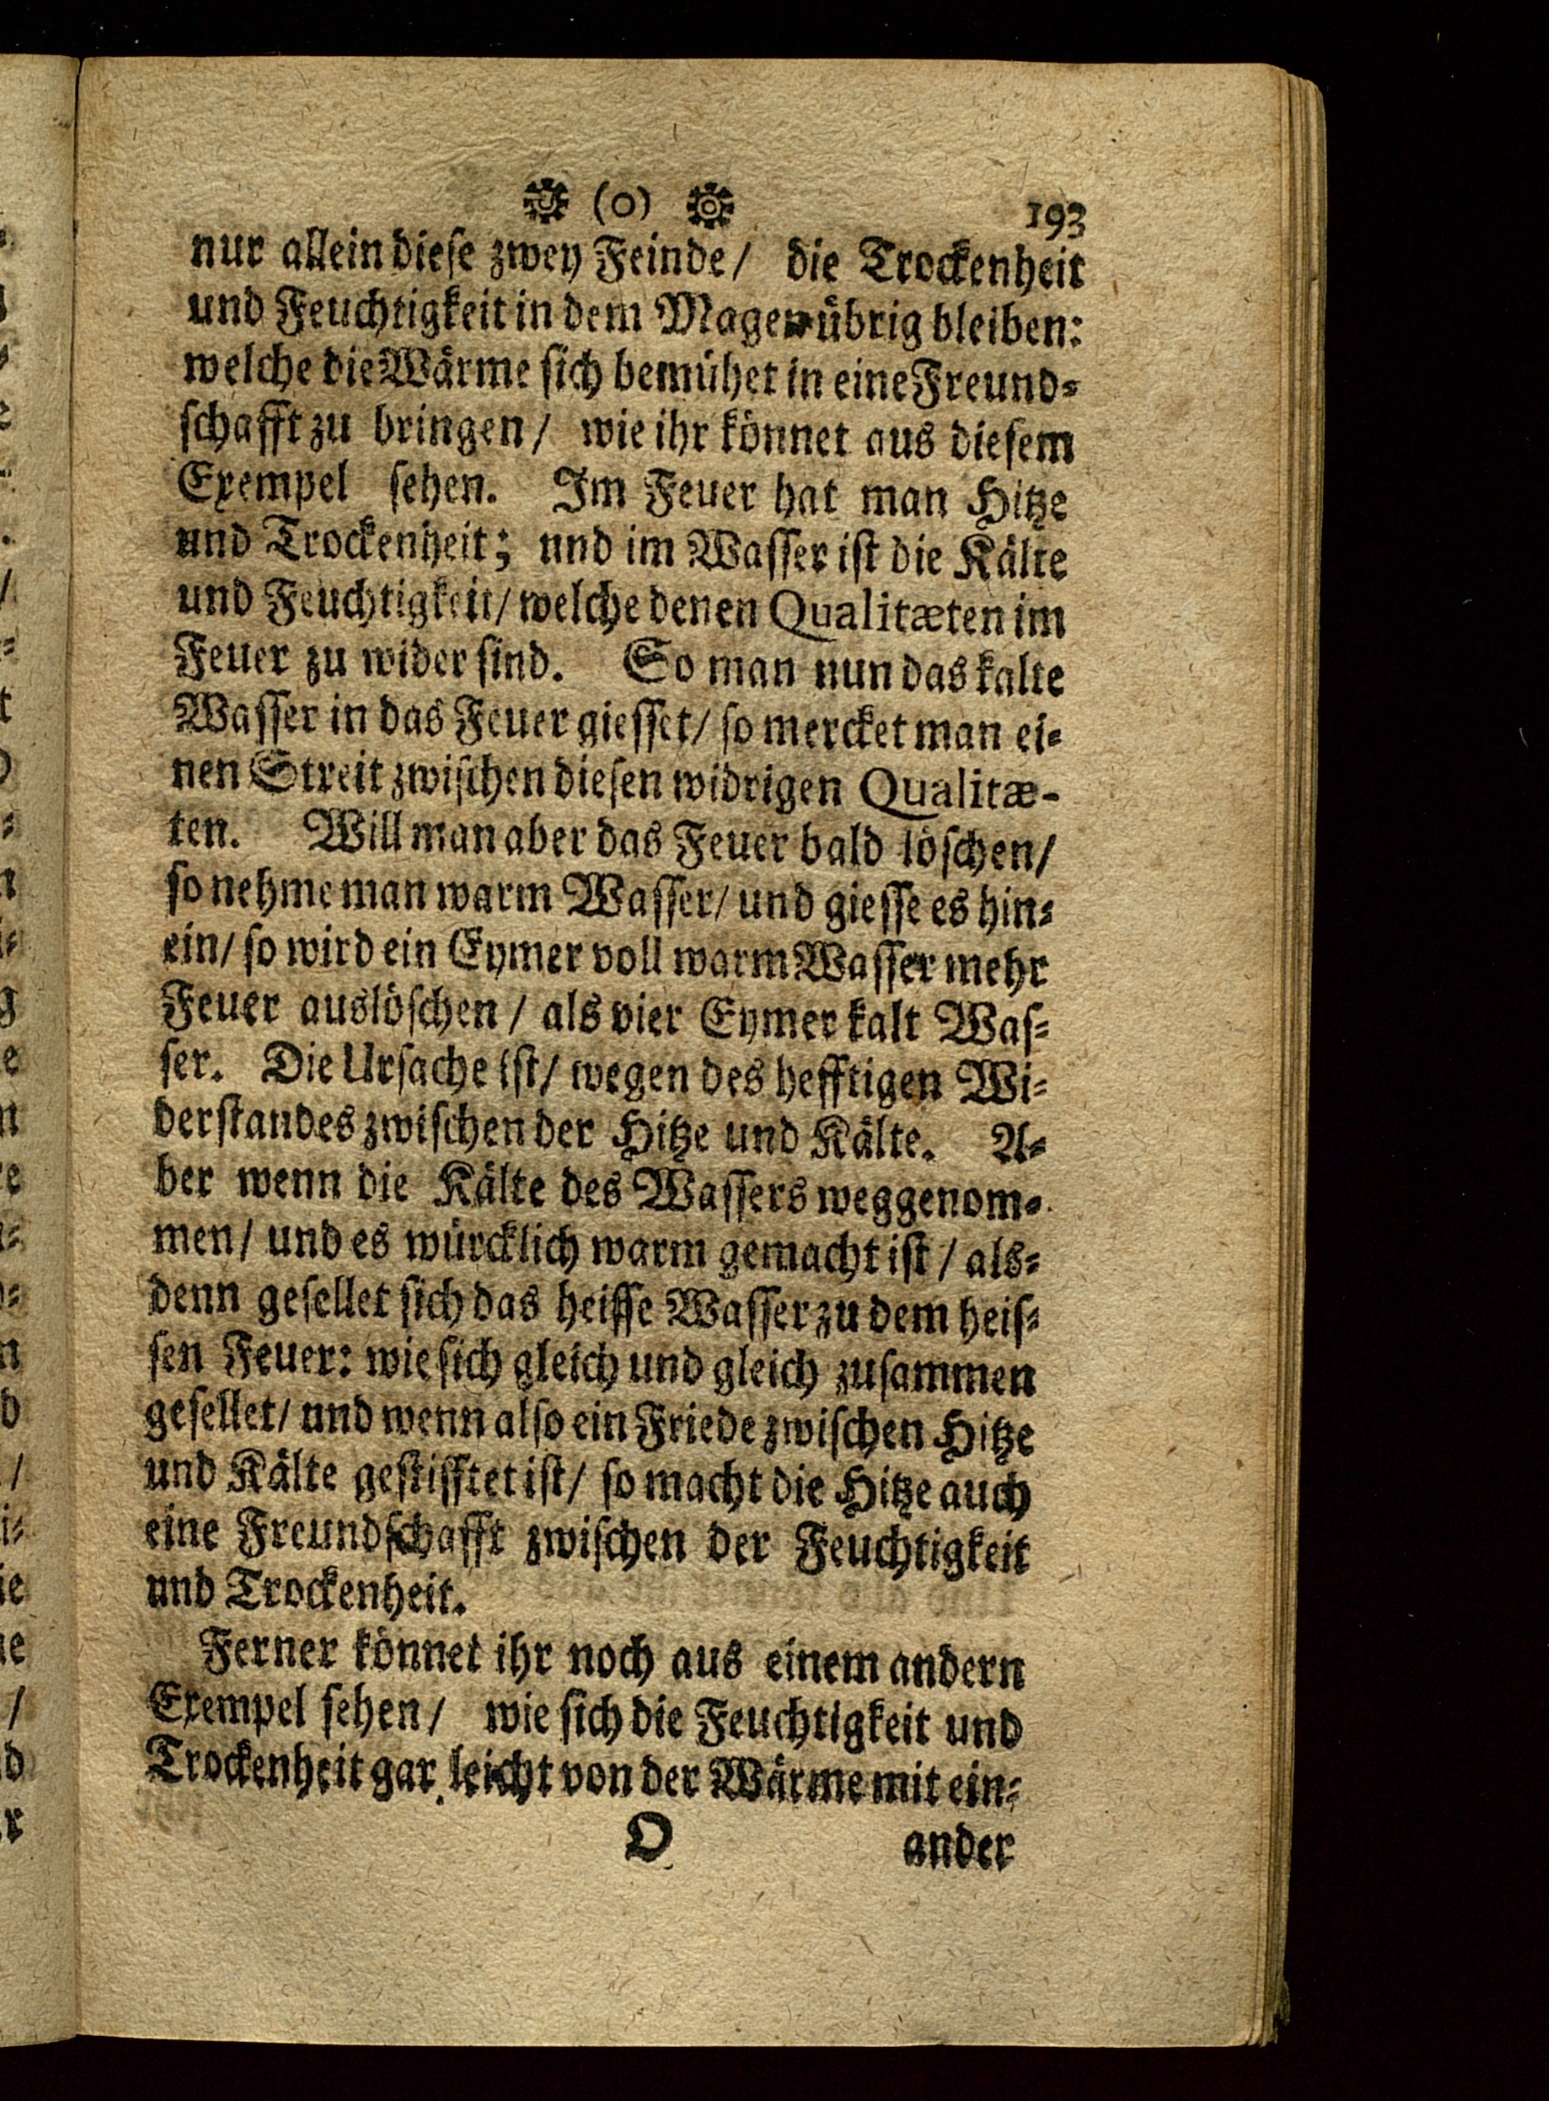 (0) 193
nur allein diese zwey Feinde/ die Trockenheit
und Feuchtigkeit in dem Magen übrig bleiben:
welche die Wärme sich bemühet in eine Freund-
schafft zu bringen/ wie ihr könnet aus diesem
Exempel sehen. Im Feuer hat man Hitze
und Trockenheit; und im Wasser ist die Kälte
und Feuchtigkeit/ welche denen Qualitæten im
Feuer zu wider sind. So man nun das kalte
Wasser in das Feuer giesset/ so mercket man ei-
nen Streit zwischen diesen widrigen Qualitæ-
ten. Will man aber das Feuer bald löschen/
so nehme man warm Wasser/ und giesse es hin-
ein/ so wird ein Eymer voll warm Wasser mehr
Feuer auslöschen/ als vier Eymer kalt Was-
ser. Die Ursache ist/ wegen des hefftigen Wi-
derstandes zwischen der Hitze und Kälte. A-
ber wenn die Kälte des Wassers weggenom-
men/ und es würcklich warm gemacht ist/ als-
denn gesellet sich das heisse Wasser zu dem heis-
sen Feuer: wie sich gleich und gleich zusammen
gesellet/ und wenn also ein Friede zwischen Hitze
und Kälte gestifftet ist/ so macht die Hitze auch
eine Freundschafft zwischen der Feuchtigkeit
und Trockenheit.
Ferner könnet ihr noch aus einem andern
Exempel sehen/ wie sich die Feuchtigkeit und
Trockenheit gar leicht von der Wärme mit ein-
O ander